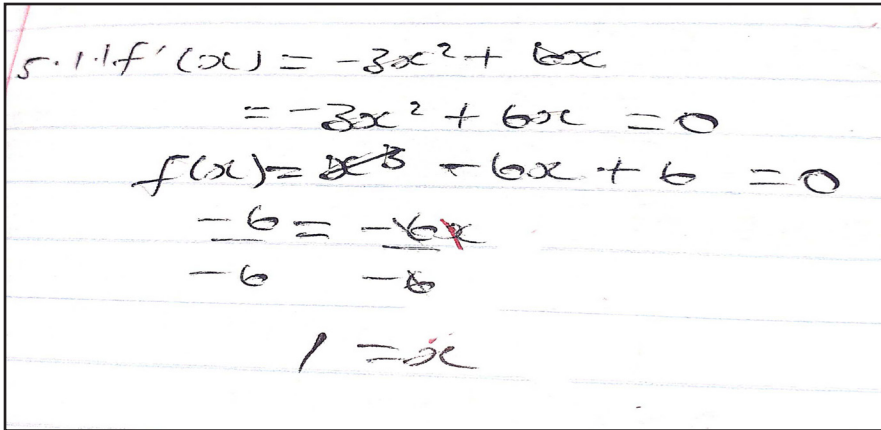 5.1.1 f'(x) = -3x² + 6x
= -3x² + 6x = 0
f(x) = -6x + 6 = 0
-6 = -6x
-6 -6
1 = x